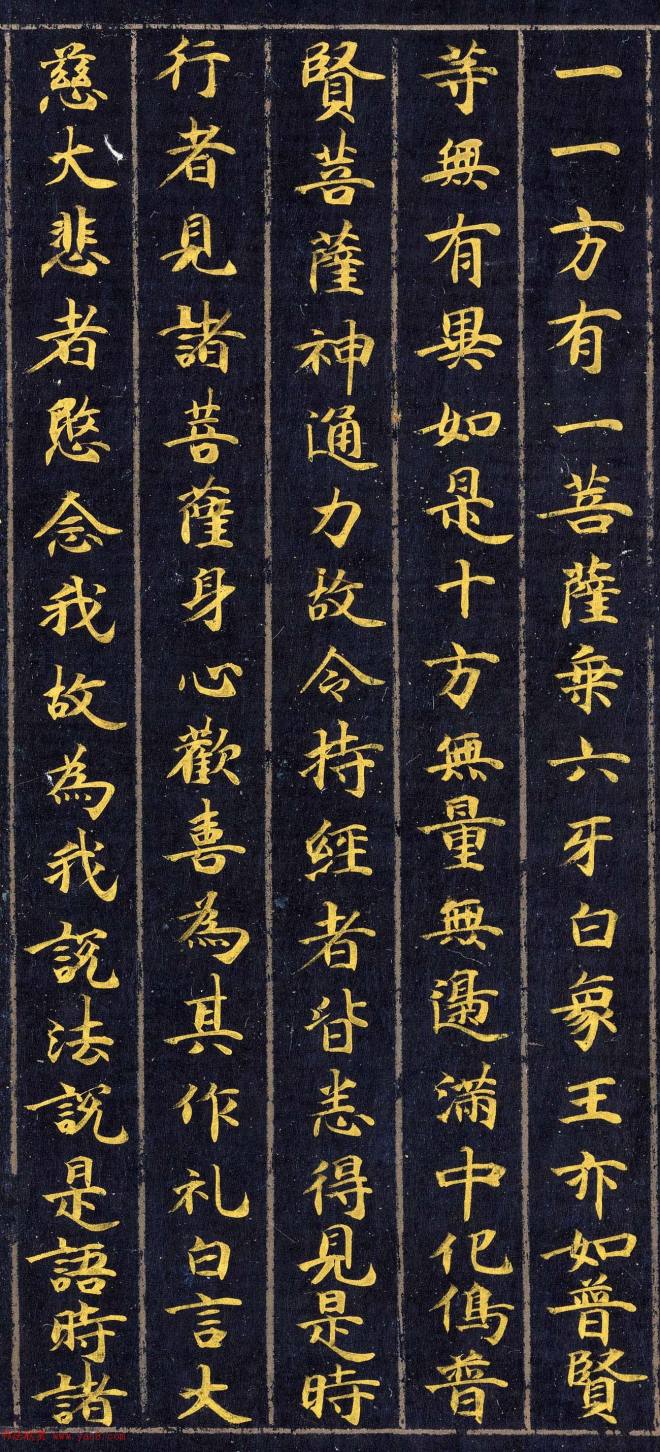 一一方有一菩薩乗六牙白象王亦如普賢
等無有異如是十方無量無邊滿中化像普
賢菩薩神通力故令持經者皆悉得見是時
行者見諸菩薩身心歡喜為其作礼白言大
慈大悲者愍念我故為我説法説是語時諸